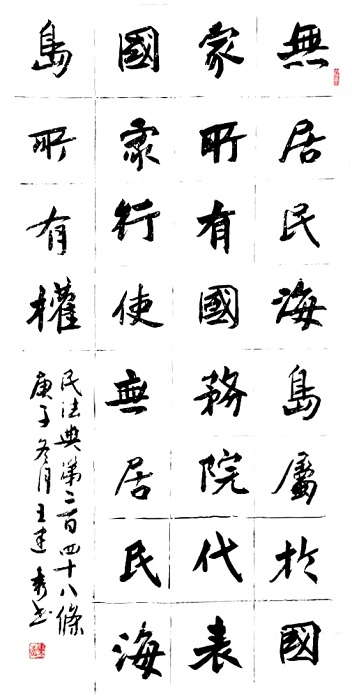 無居民海島屬於國
家所有國務院代表
國家行使無居民海
島所有權
民法典第二百四十八條
庚子冬月王建秀书